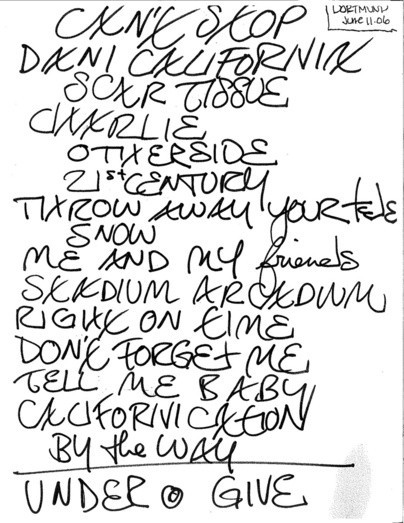 CAN'T STOP
DORTMUND
JUNE 11-06
DANI CALIFORNIA
SCAR TISSUE
CHARLIE
OTHERSIDE
21st CENTURY
THROW AWAY YOUR tele
SNOW
ME AND MY friends
STADIUM ARCADIUM
RIGHT ON TIME
DON'T FORGET ME
TELL ME BABY
CALIFORNICATION
BY the WAY
UNDER GIVE